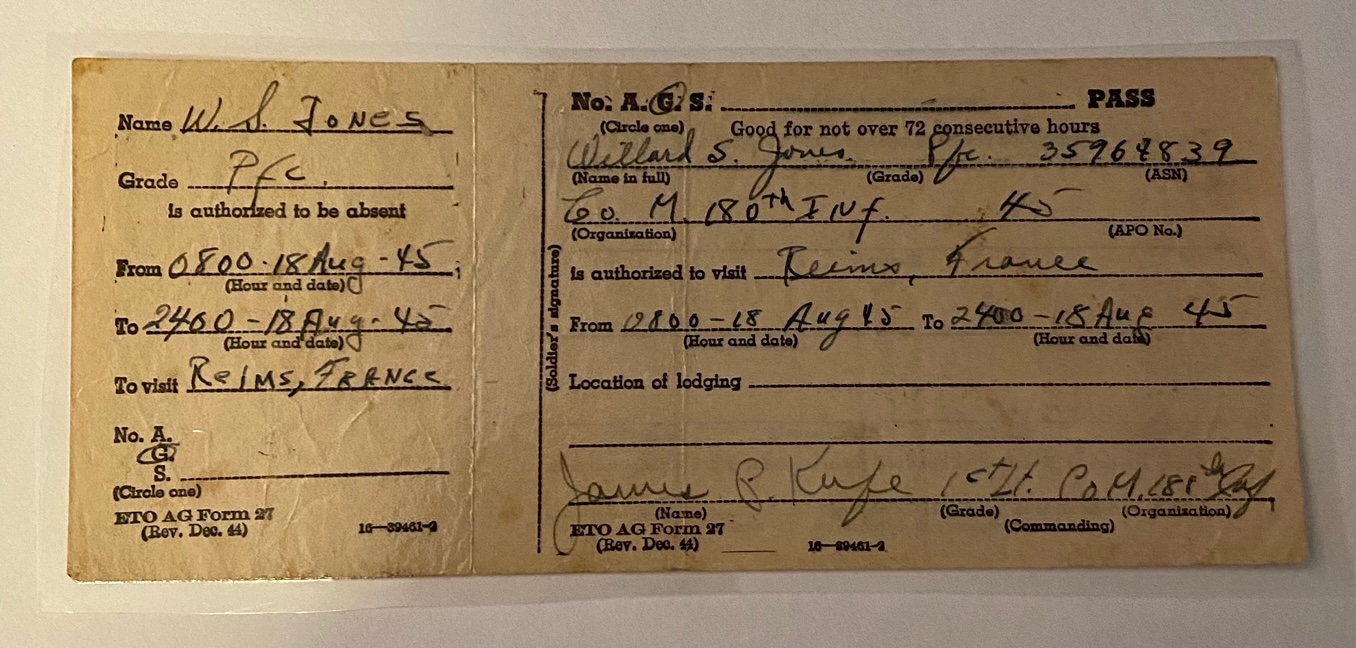 Name W. S. JONES
Grade Pfc.
is authorized to be absent
From 0800-18 Aug-45;
(Hour and date)
To 2400-18 Aug-45
(Hour and date)
To visit Reims, FRANCE
No. A.
G.
S.
(Circle one)
ETO AG Form 27
(Rev. Dec. 44) 16—39461-2
(Soldier's signature)
No. A. G. S. PASS
(Circle one) Good for not over 72 consecutive hours
Willard S. Jones. Pfc. 35964839
(Name in full) (Grade) (ASN)
Co. M. 180th INf. 45
(Organization) (APO No.)
is authorized to visit Reims, France
From 0800-18 Aug 45 To 2400-18 Aug 45
(Hour and date) (Hour and date)
Location of lodging
James P. 1st Lt. Co M.
(Name) (Grade) (Organization)
(Commanding)
ETO AG Form 27
(Rev. Dec. 44) 16—39461-2